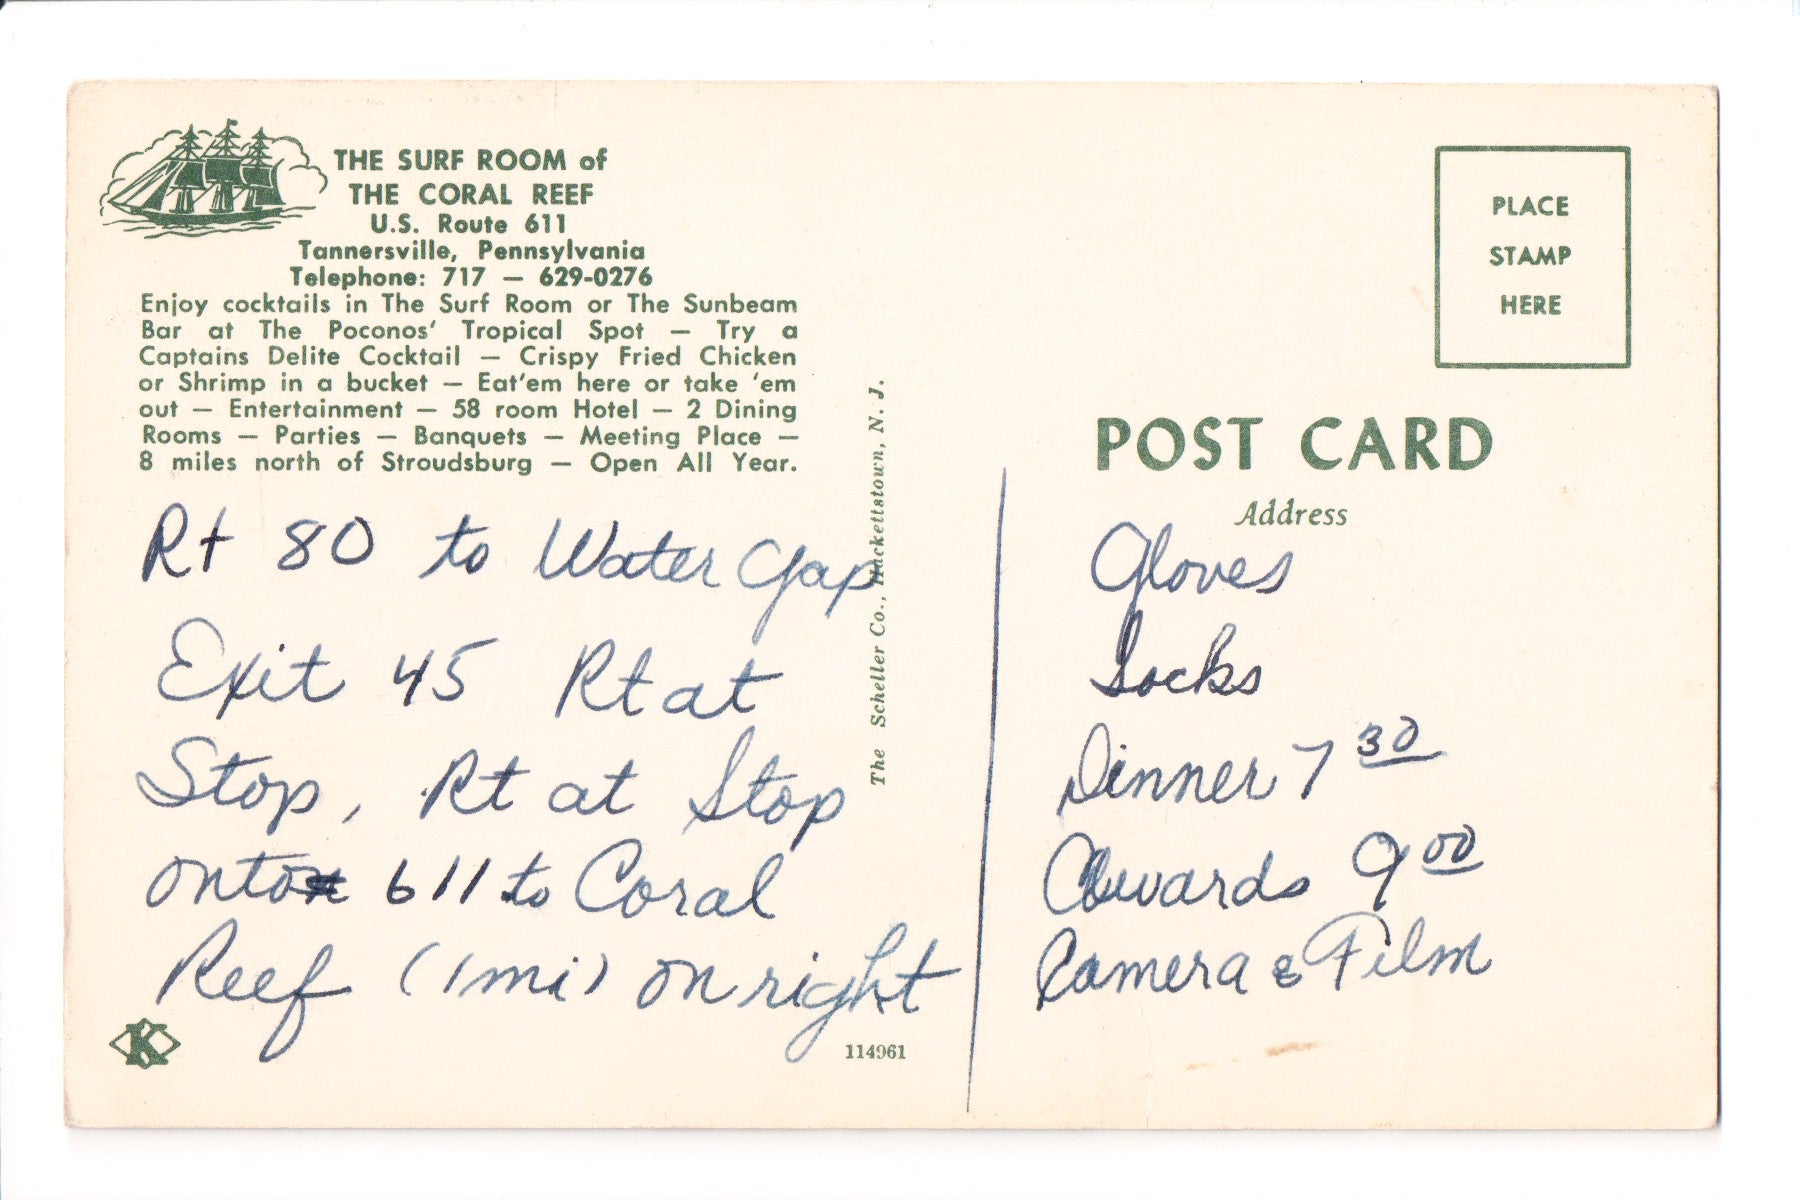 THE SURF ROOM of
THE CORAL REEF
U.S. Route 611
Tannersville, Pennsylvania
Telephone: 717 — 629-0276
Enjoy cocktails in The Surf Room or The Sunbeam
Bar at The Poconos' Tropical Spot — Try a
Captains Delite Cocktail — Crispy Fried Chicken
or Shrimp in a bucket — Eat'em here or take 'em
out — Entertainment — 58 room Hotel — 2 Dining
Rooms — Parties — Banquets — Meeting Place —
8 miles north of Stroudsburg — Open All Year.
Rt 80 to Water Gap
Exit 45 Rt at
Stop, Rt at Stop
onto 611 to Coral
Reef (1 mi) on right
K
114961
The Scheller Co., Hackettstown, N. J.
PLACE
STAMP
HERE
POST CARD
Address
Gloves
Socks
Dinner 7 30
Awards 9 00
Camera & Film